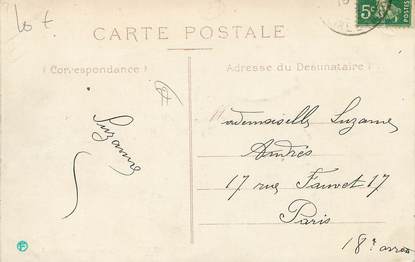 Lot.
5c
POSTES
CARTE POSTALE
(Correspondance)
Adresse du Destinataire)
Suzanne
Mademoiselle Suzanne
Andrés
17 rue Fauvet 17
Paris
18e arron